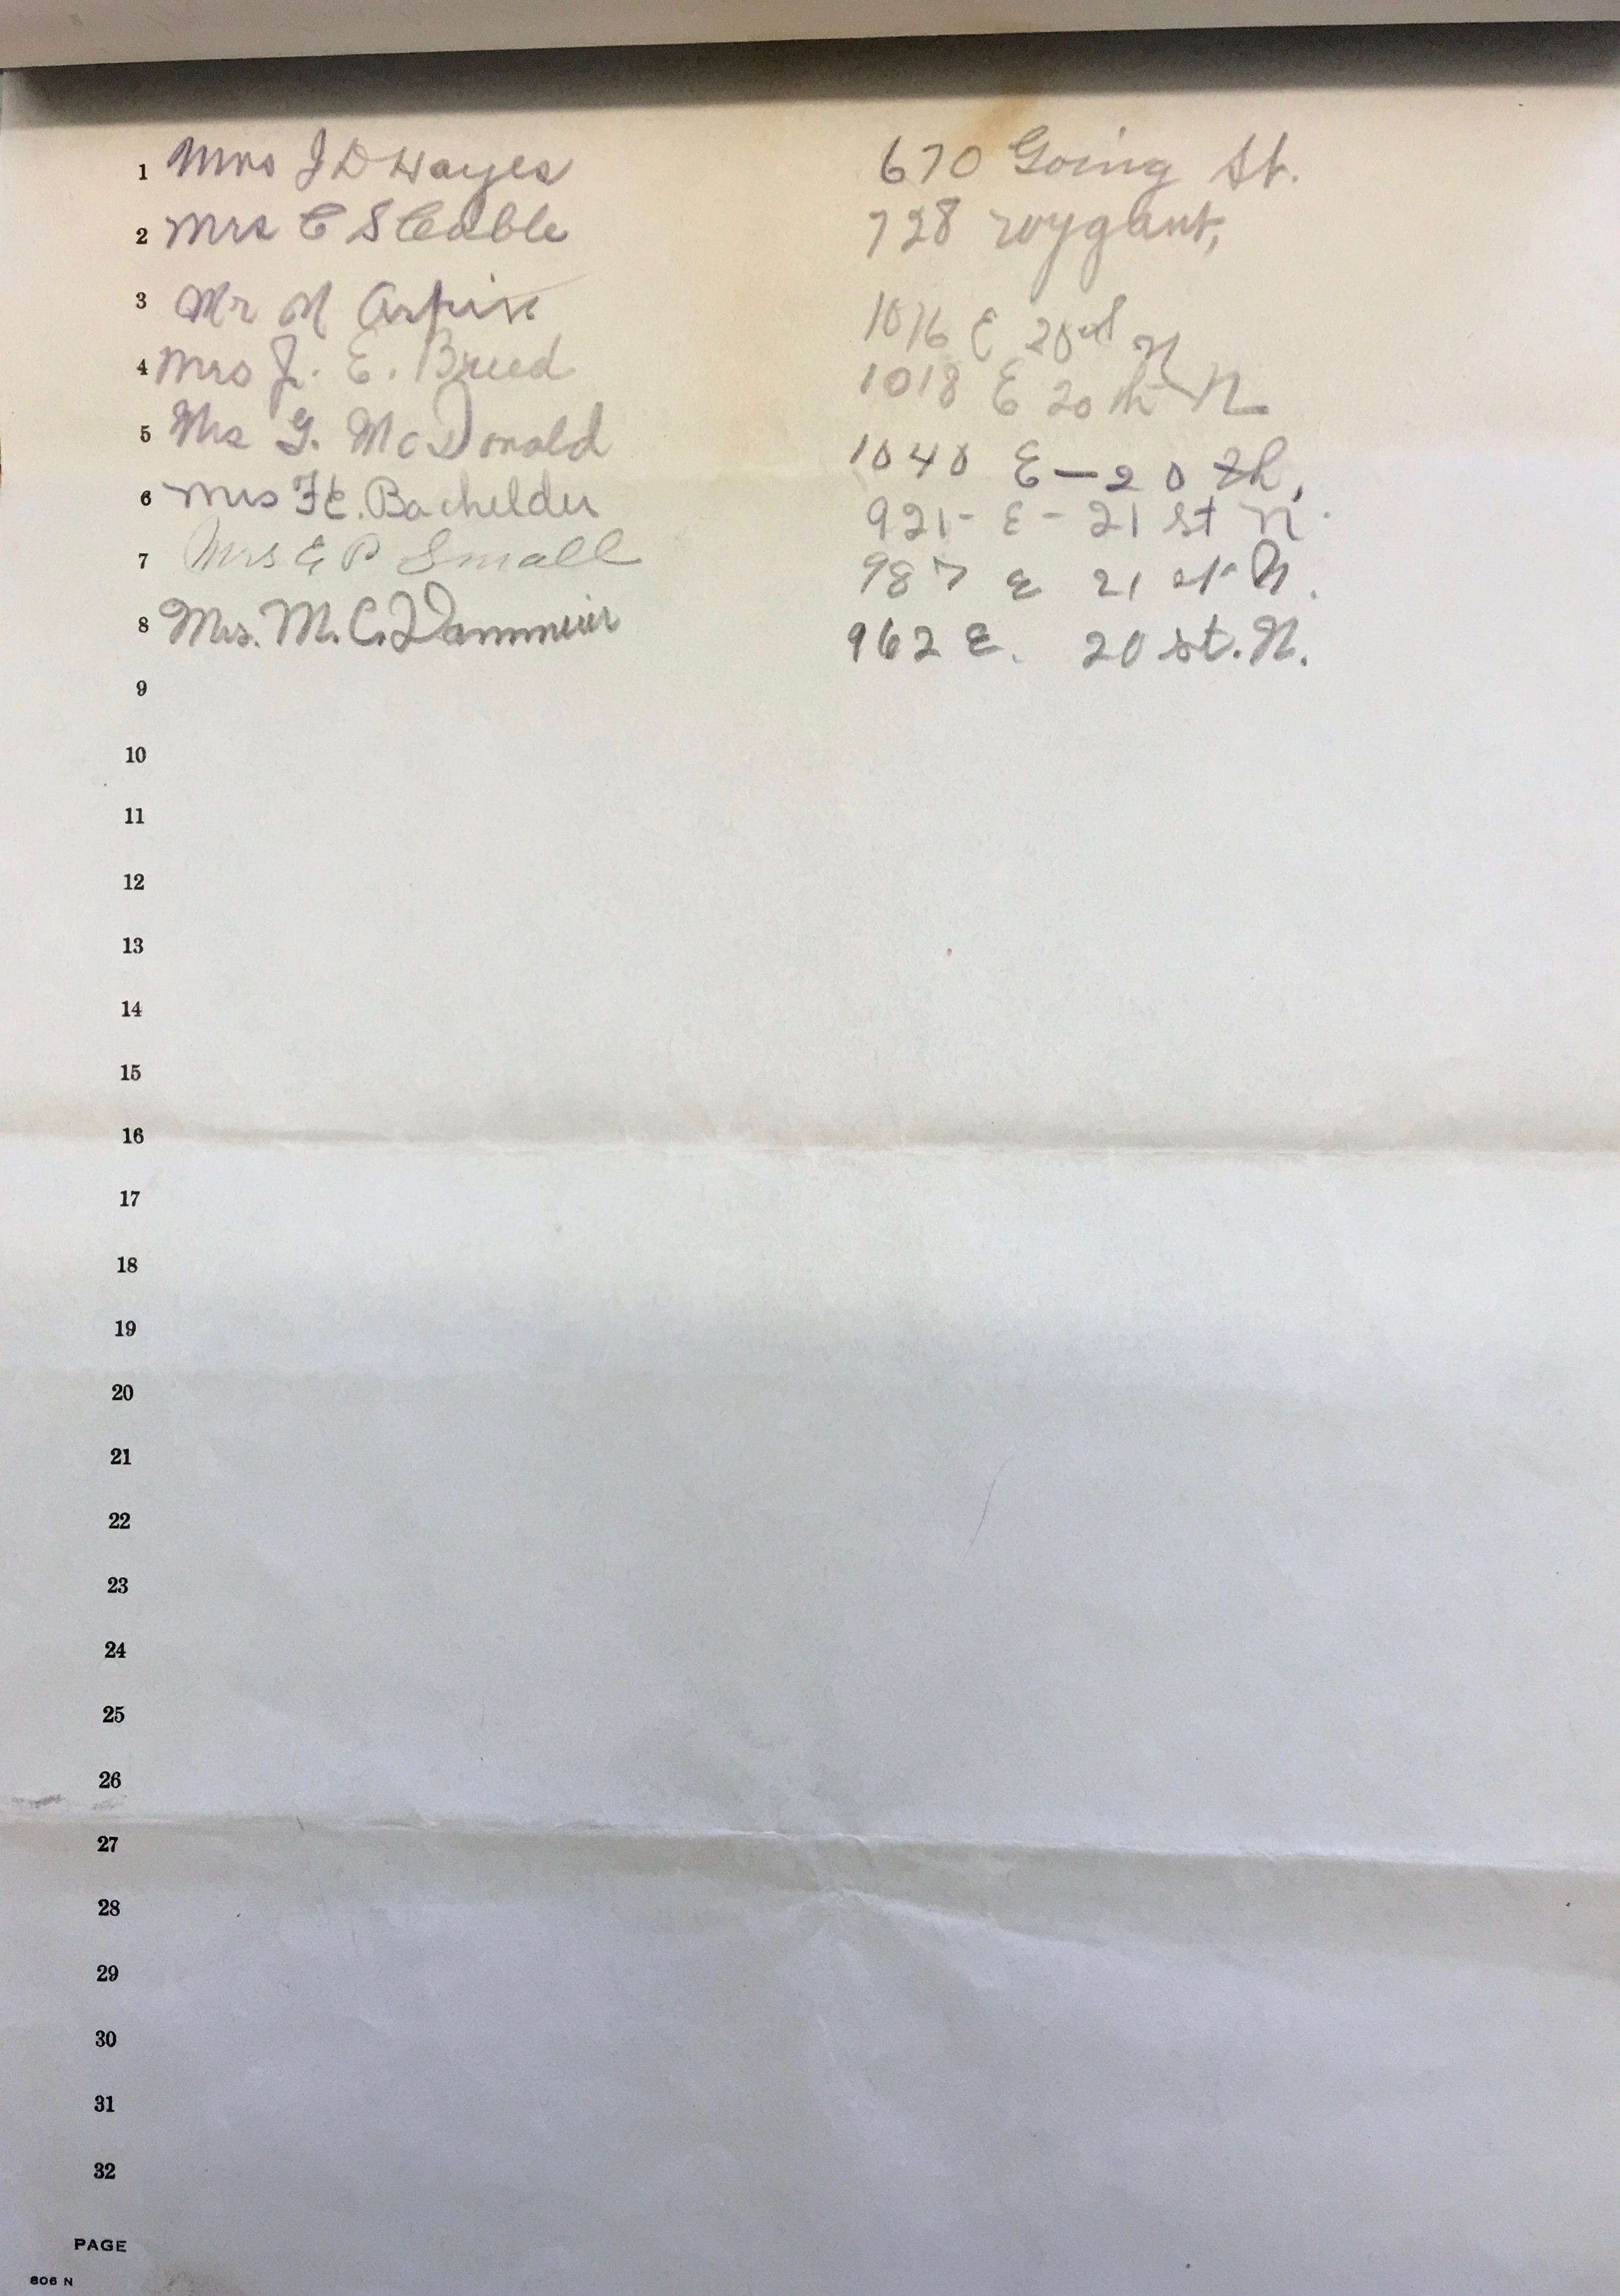 1 Mrs J D Hayes 670 Going St.
2 Mrs C S Cable 728 Wygant,
3 Mr N Arpin 1016 E 20 N
4 Mrs J. E. Breed 1018 E 20 th N
5 Mrs G. McDonald 1040 E - 20 th,
6 Mrs F E. Bachelder 921 - E - 21 st N.
7 Mrs E P Small 987 E 21 st N.
8 Mrs. M. C. Dammeier 962 E. 20 st. N.
9
10
11
12
13
14
15
16
17
18
19
20
21
22
23
24
25
26
27
28
29
30
31
32
PAGE
806 N